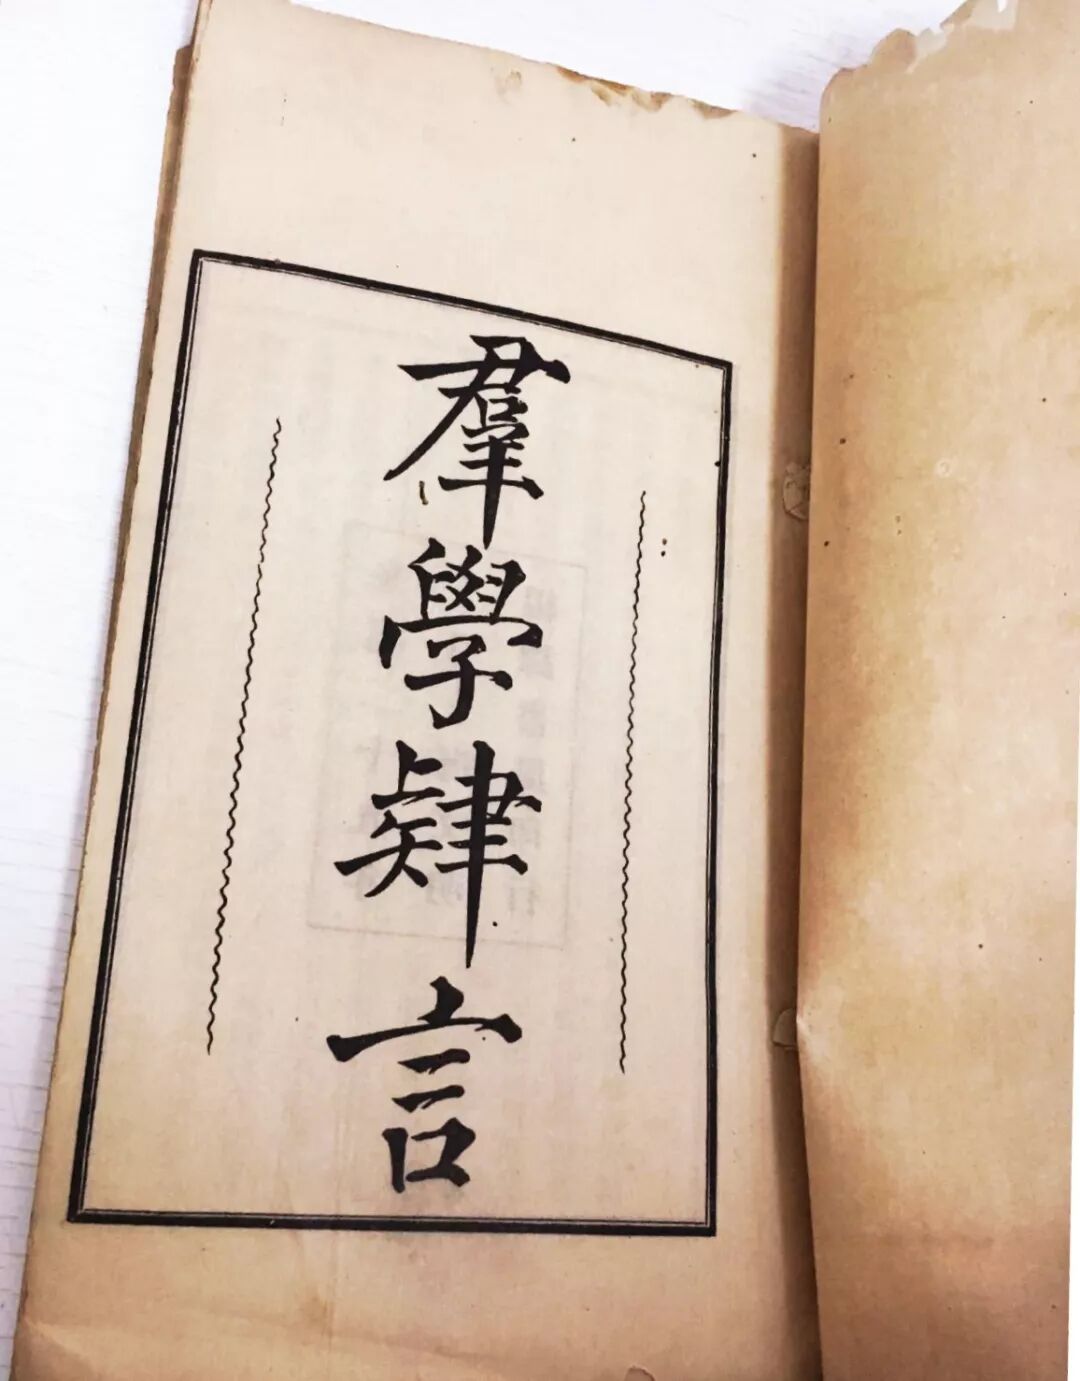 羣學肄言